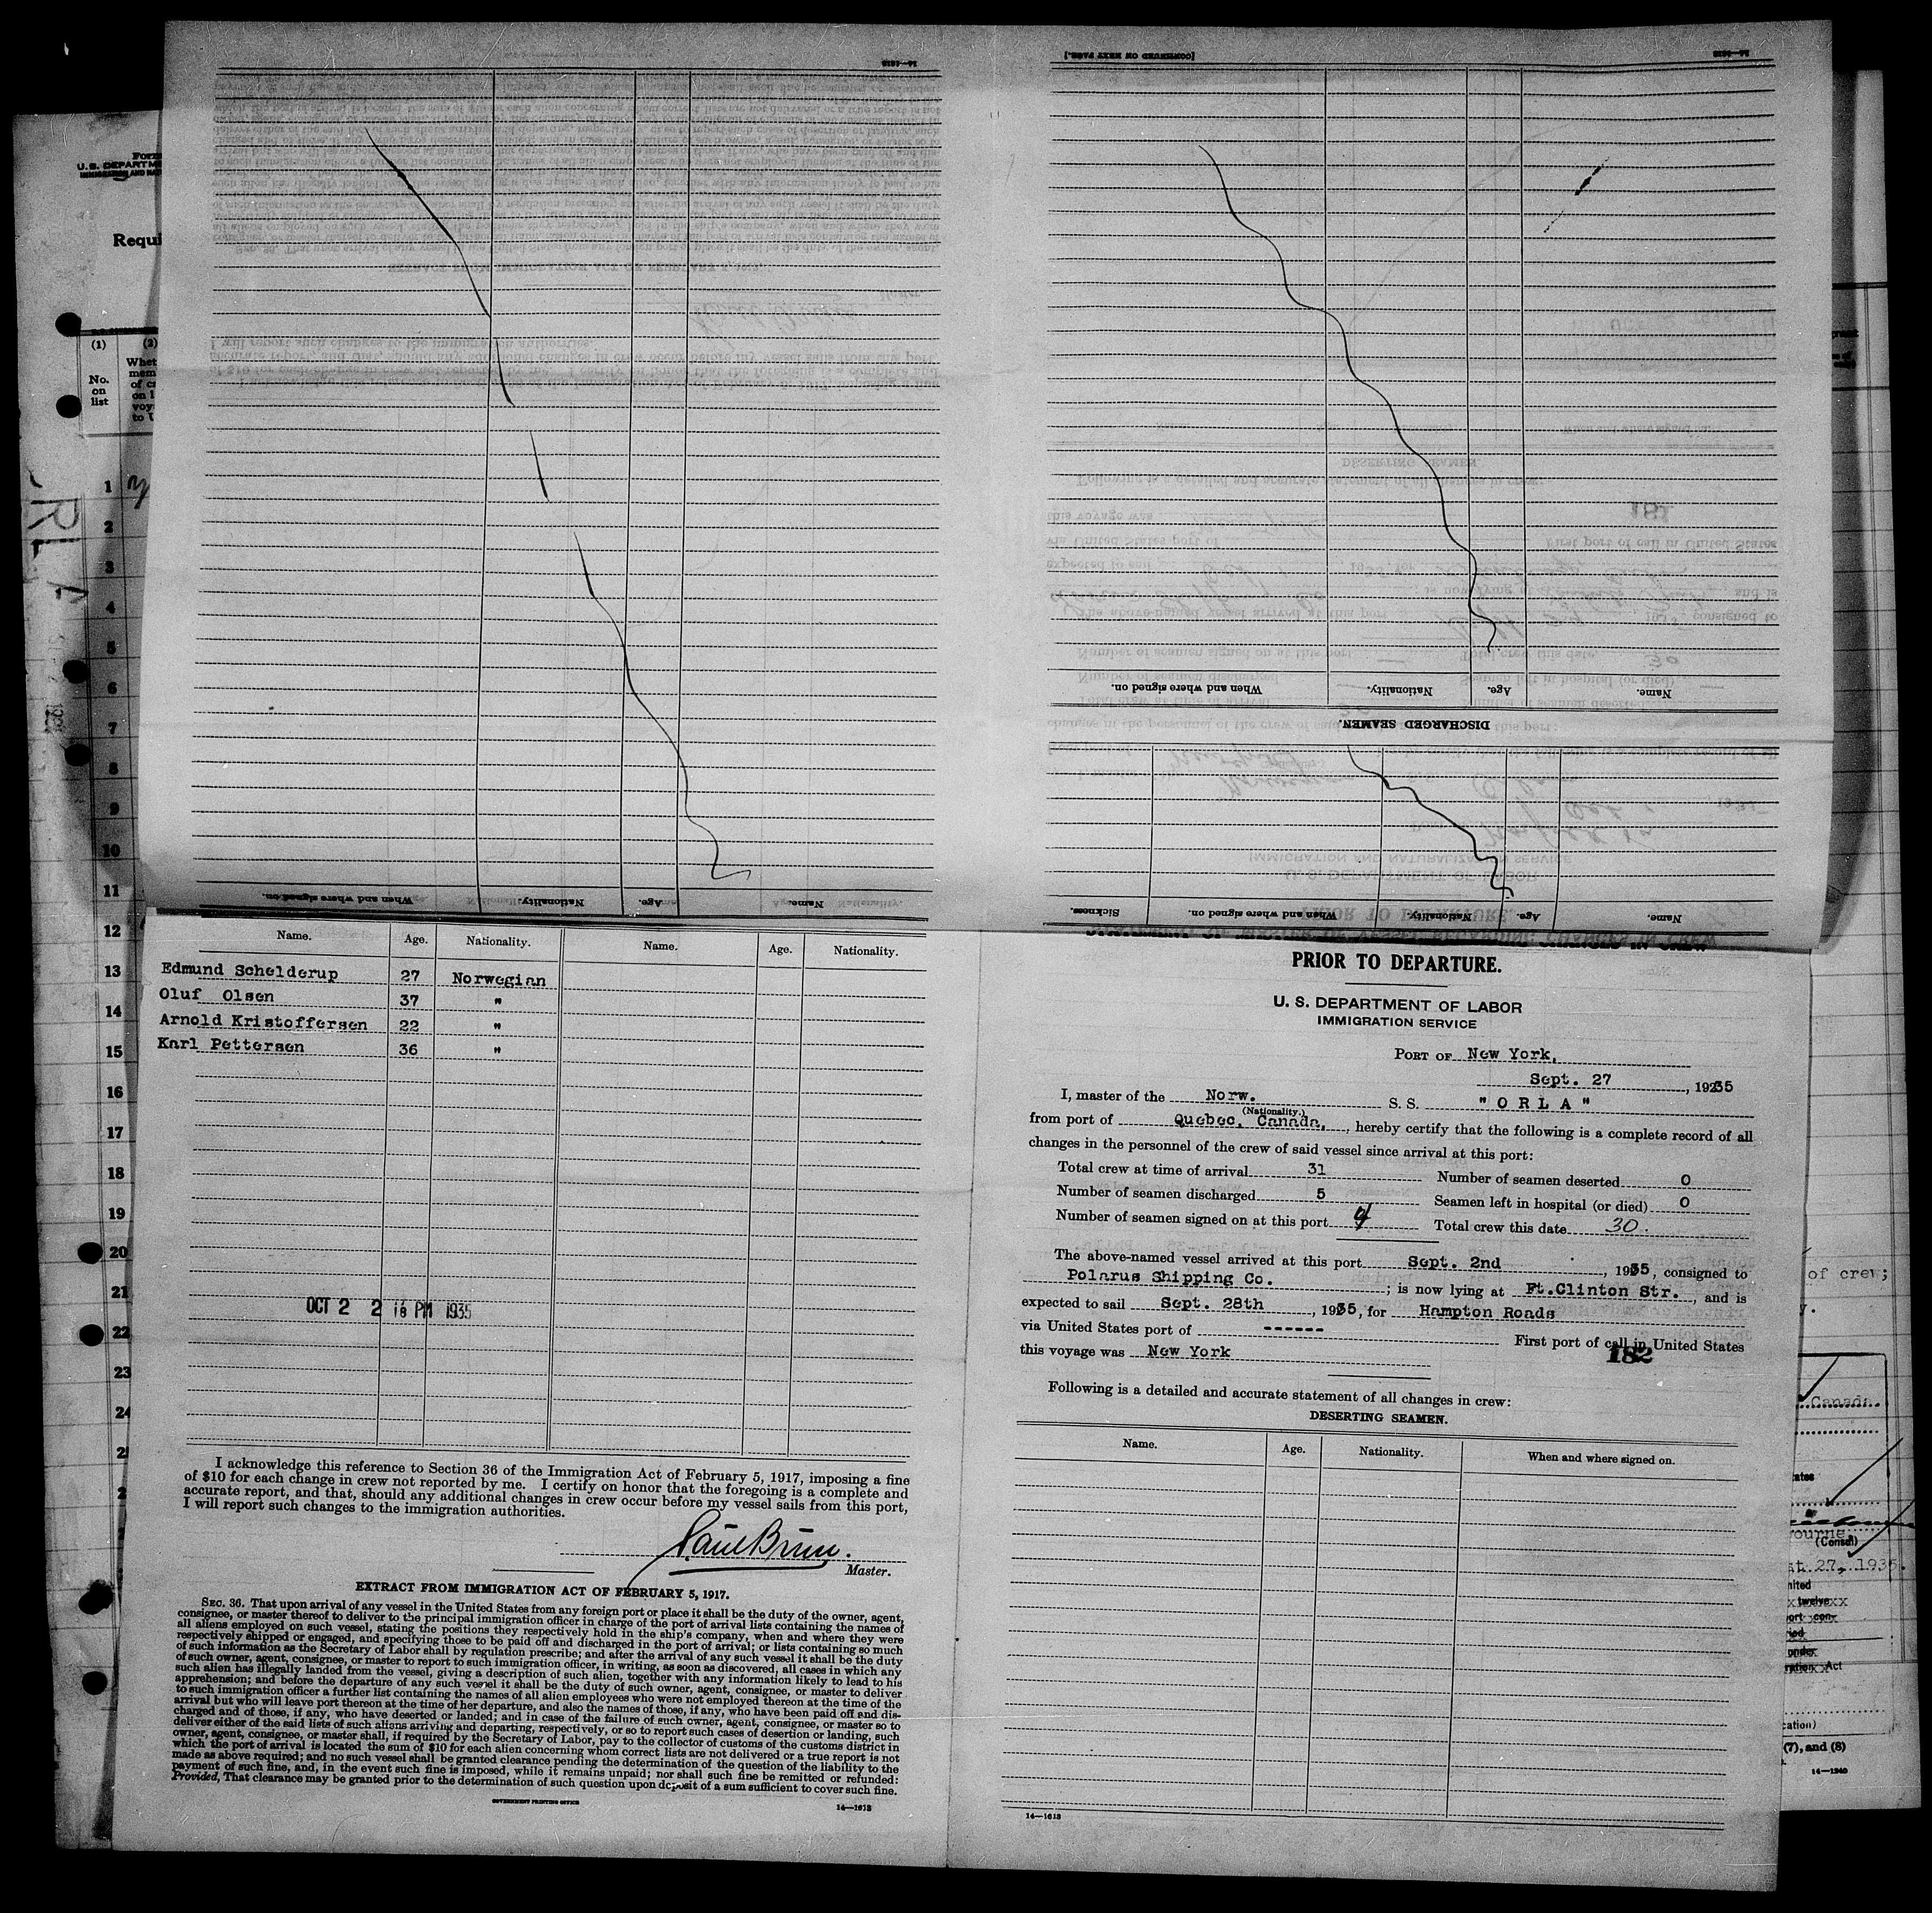 Form
U. S. DEPARTM
IMMIGRATION AND NAT
Requi
(1)
(2)
No.
on
list
Whet
mem
of c
on l
voy
to U
1
2
3
4
5
6
7
8
9
10
11
12
13
14
15
16
17
18
19
20
21
22
23
24
[CONTINUED ON NEXT PAGE.]
14—1613
14—1613
When and where signed on.
Nationality.
Age.
Name.
When and where signed on.
Nationality.
Age.
Name.
DISCHARGED SEAMEN.
Sickness.
When and where signed on.
Nationality.
Age.
Name.
Name.
Age.
Nationality.
Name.
Age.
Nationality.
Edmund Schelderup 27 Norwegian
Oluf Olsen 37 "
Arnold Kristoffersen 22 "
Karl Pettersen 36 "
OCT 2 2 18 PM 1935
I acknowledge this reference to Section 36 of the Immigration Act of February 5, 1917, imposing a fine
of $10 for each change in crew not reported by me. I certify on honor that the foregoing is a complete and
accurate report, and that, should any additional changes in crew occur before my vessel sails from this port,
I will report such changes to the immigration authorities.
Paul Bruun.
Master.
EXTRACT FROM IMMIGRATION ACT OF FEBRUARY 5, 1917.
SEC. 36. That upon arrival of any vessel in the United States from any foreign port or place it shall be the duty of the owner, agent,
consignee, or master thereof to deliver to the principal immigration officer in charge of the port of arrival lists containing the names of
all aliens employed on such vessel, stating the positions they respectively hold in the ship's company, when and where they were
respectively shipped or engaged, and specifying those to be paid off and discharged in the port of arrival; or lists containing so much
of such information as the Secretary of Labor shall by regulation prescribe; and after the arrival of any such vessel it shall be the duty
of such owner, agent, consignee, or master to report to such immigration officer, in writing, as soon as discovered, all cases in which any
such alien has illegally landed from the vessel, giving a description of such alien, together with any information likely to lead to his
apprehension; and before the departure of any such vessel it shall be the duty of such owner, agent, consignee, or master to deliver
to such immigration officer a further list containing the names of all alien employees who were not employed thereon at the time of the
arrival but who will leave port thereon at the time of her departure, and also the names of those, if any, who have been paid off and dis-
charged and of those, if any, who have deserted or landed; and in case of the failure of such owner, agent, consignee, or master so to
deliver either of the said lists of such aliens arriving and departing, respectively, or so to report such cases of desertion or landing, such
owner, agent, consignee, or master shall, if required by the Secretary of Labor, pay to the collector of customs of the customs district in
which the port of arrival is located the sum of $10 for each alien concerning whom correct lists are not delivered or a true report is not
made as above required; and no such vessel shall be granted clearance pending the determination of the question of the liability to the
payment of such fine, and, in the event such fine is imposed, while it remains unpaid; nor shall such fine be remitted or refunded:
Provided, That clearance may be granted prior to the determination of such question upon deposit of a sum sufficient to cover such fine.
GOVERNMENT PRINTING OFFICE
14—1613
PRIOR TO DEPARTURE.
U. S. DEPARTMENT OF LABOR
IMMIGRATION SERVICE
PORT OF New York,
Sept. 27, 1935
I, master of the Norw. S. S. "ORLA"
(Nationality.)
from port of Quebec, Canada, hereby certify that the following is a complete record of all
changes in the personnel of the crew of said vessel since arrival at this port:
Total crew at time of arrival 31 Number of seamen deserted 0
Number of seamen discharged 5 Seamen left in hospital (or died) 0
Number of seamen signed on at this port 4 Total crew this date 30.
The above-named vessel arrived at this port Sept. 2nd, 1935, consigned to
Polarus Shipping Co.; is now lying at Ft.Clinton Str., and is
expected to sail Sept. 28th, 1935, for Hampton Roads
via United States port of ------ First port of call in United States
this voyage was New York
182
Following is a detailed and accurate statement of all changes in crew:
DESERTING SEAMEN.
Name.
Age.
Nationality.
When and where signed on.
14—1613
of crew;
Canada.
(Consul)
27, 1935.
twelve
Act
(7), and (8)
14—1240